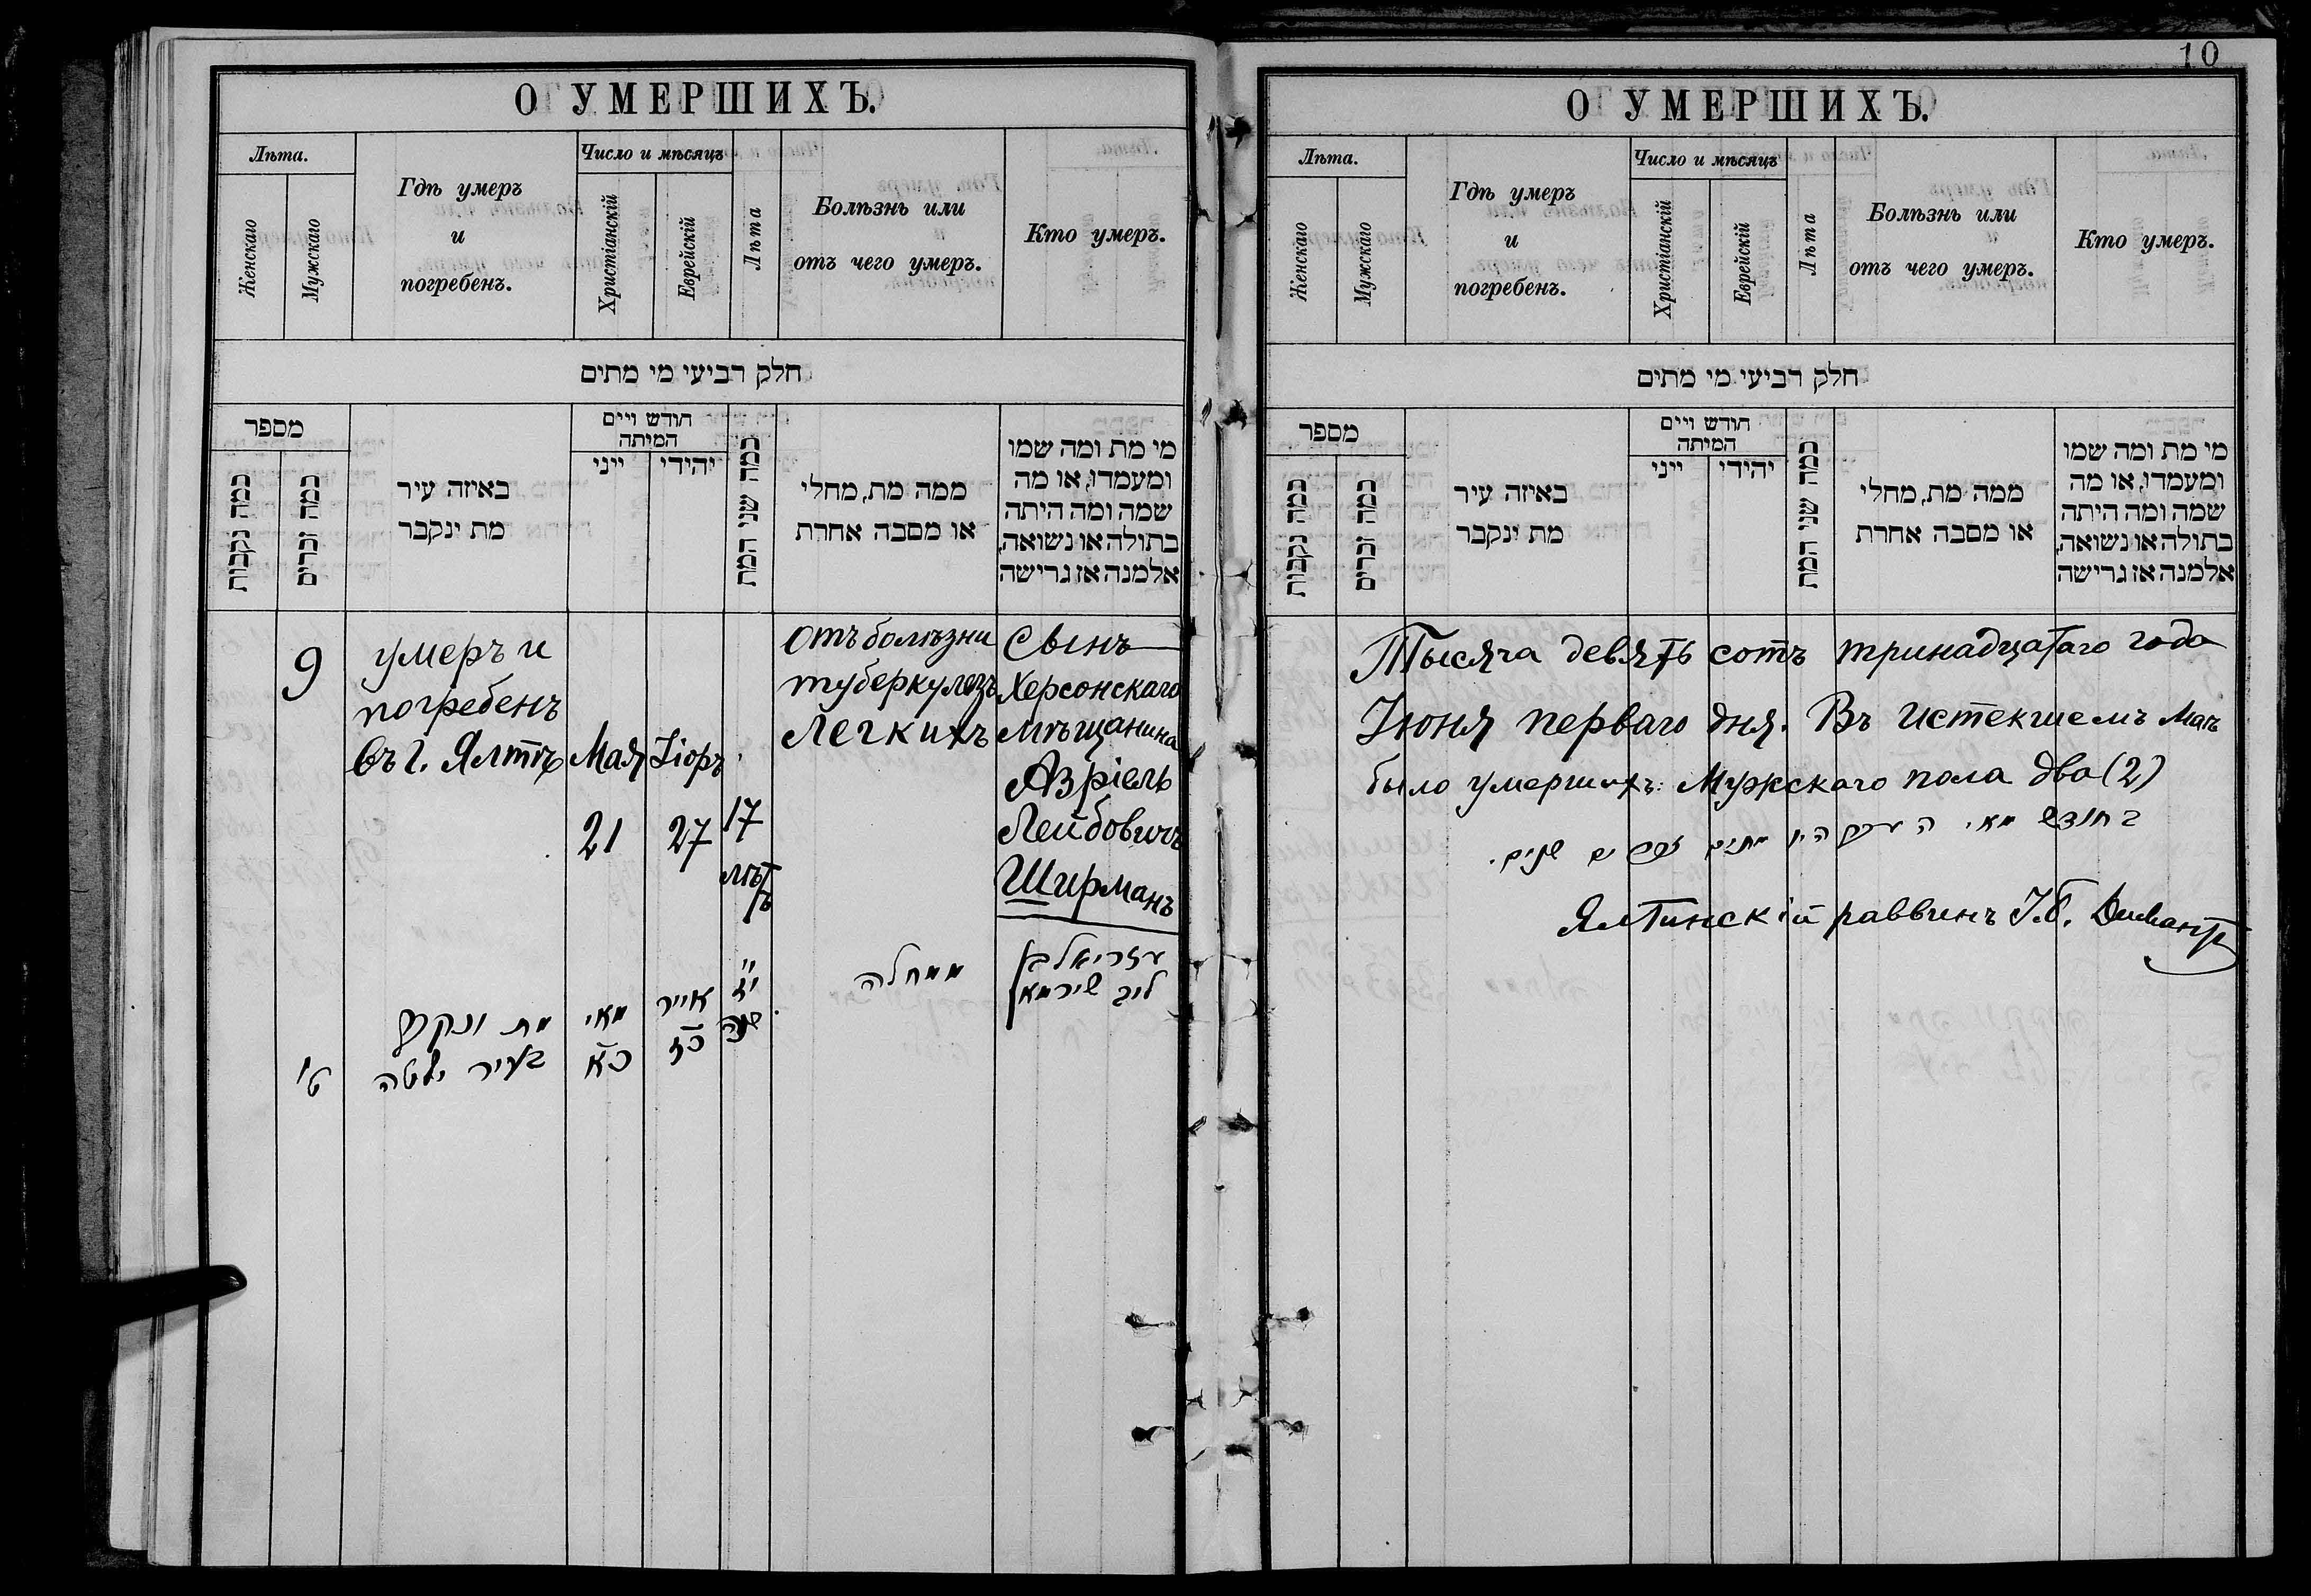 О УМЕРШИХЪ.
Лѣта.
Женскаго
Мужскаго
Гдѣ умеръ
и
погребенъ.
Число и мѣсяцъ
Христіанскій
Еврейскій
Лѣта
Болѣзнь или
отъ чего умеръ.
Кто умеръ.
חלק רביעי מי מתים
מספר
כמה נקבות
כמה זכרים
באיזה עיר
מת ינקבר
חודש ויים
המיתה
ייני
יהידי
כמה שני המת
ממה מת, מחלי
או מסבה אחרת
מי מת ומה שמו
ומעמדו, או מה
שמה ומה היתה
בתולה או נשואה,
אלמנה אז גרישה
9
умеръ и
погребенъ
въ г. Ялтѣ
Мая
21
Іоръ
27
17
лѣтъ
отъ болѣзни
туберкулозъ
Легкихъ
Сынъ
Херсонскаго
мѣщанина
Азріель
Лейбовичъ
Ширманъ
ט'
מת ונקבר
בעיר ילטה
מאי
כא
אייר
כז
יז
שנה
ממחלה
עזריאל בן
ליב שירמאן
10
О УМЕРШИХЪ.
Лѣта.
Женскаго
Мужскаго
Гдѣ умеръ
и
погребенъ.
Число и мѣсяцъ
Христіанскій
Еврейскій
Лѣта
Болѣзнь или
отъ чего умеръ.
Кто умеръ.
חלק רביעי מי מתים
מספר
כמה נקבות
כמה זכרים
באיזה עיר
מת ינקבר
חודש ויים
המיתה
ייני
יהידי
כמה שני המת
ממה מת, מחלי
או מסבה אחרת
מי מת ומה שמו
ומעמדו, או מה
שמה ומה היתה
בתולה או נשואה,
אלמנה אז גרישה
Тысяча девять сотъ тринадцатаго года
Іюня перваго дня. Въ истекшемъ Маѣ
было умершихъ: Мужскаго пола два (2)
בחודש מאי היו מתים שנים.
Ялтинскій раввинъ І.б.